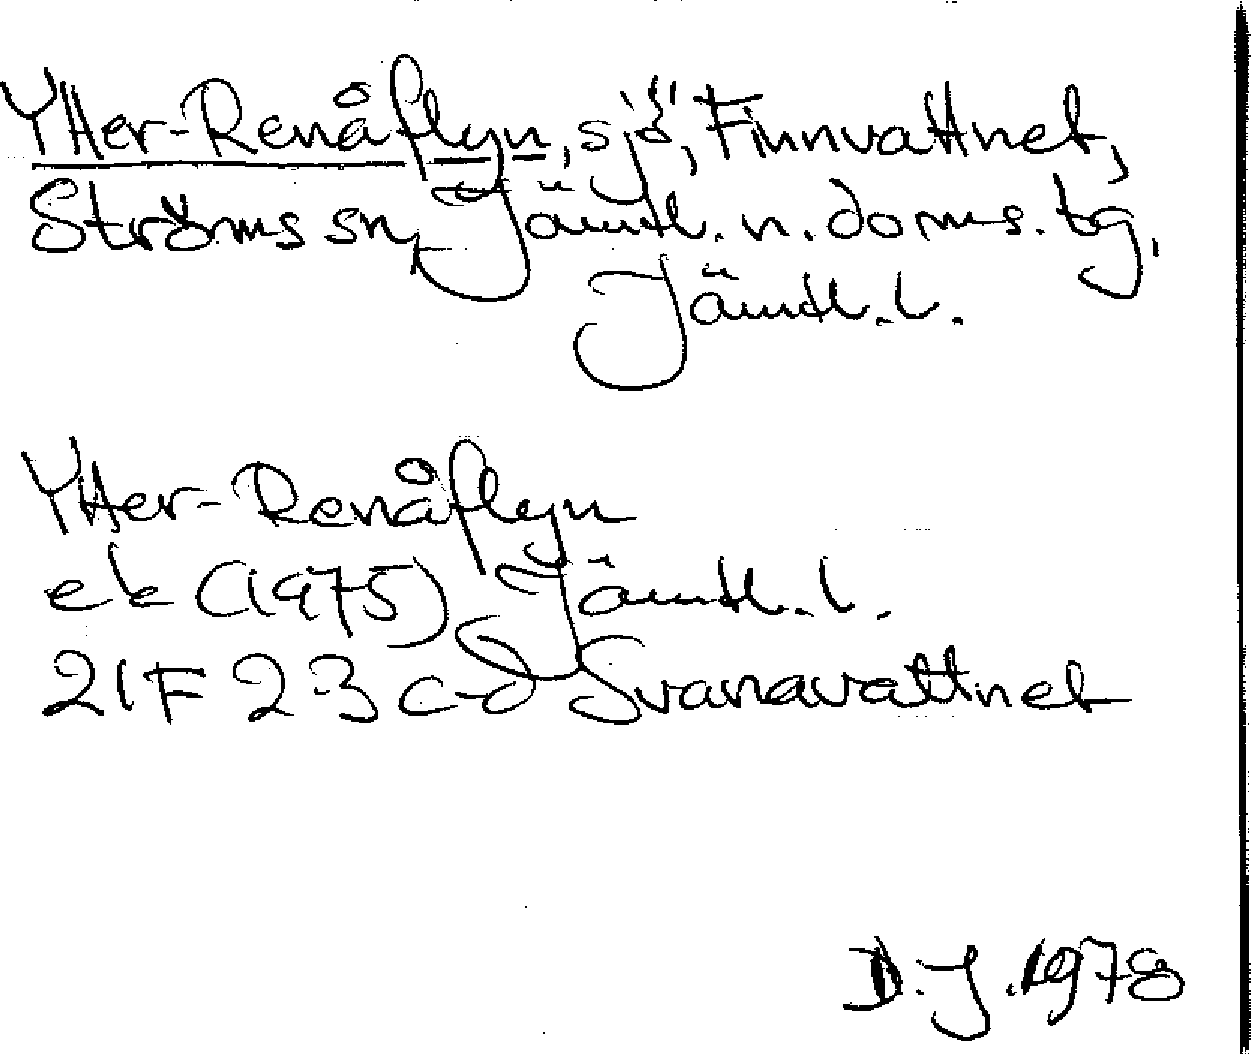 Ytter-Renåflyn, sjö, Finnvattnet,
Ströms sn, Jämtl. n. doms. tg,
Jämtl. l.
Ytter-Renåflyn
ek (1975) Jämtl. l.
21F 23 c-d Svanavattnet
D. J. 1978